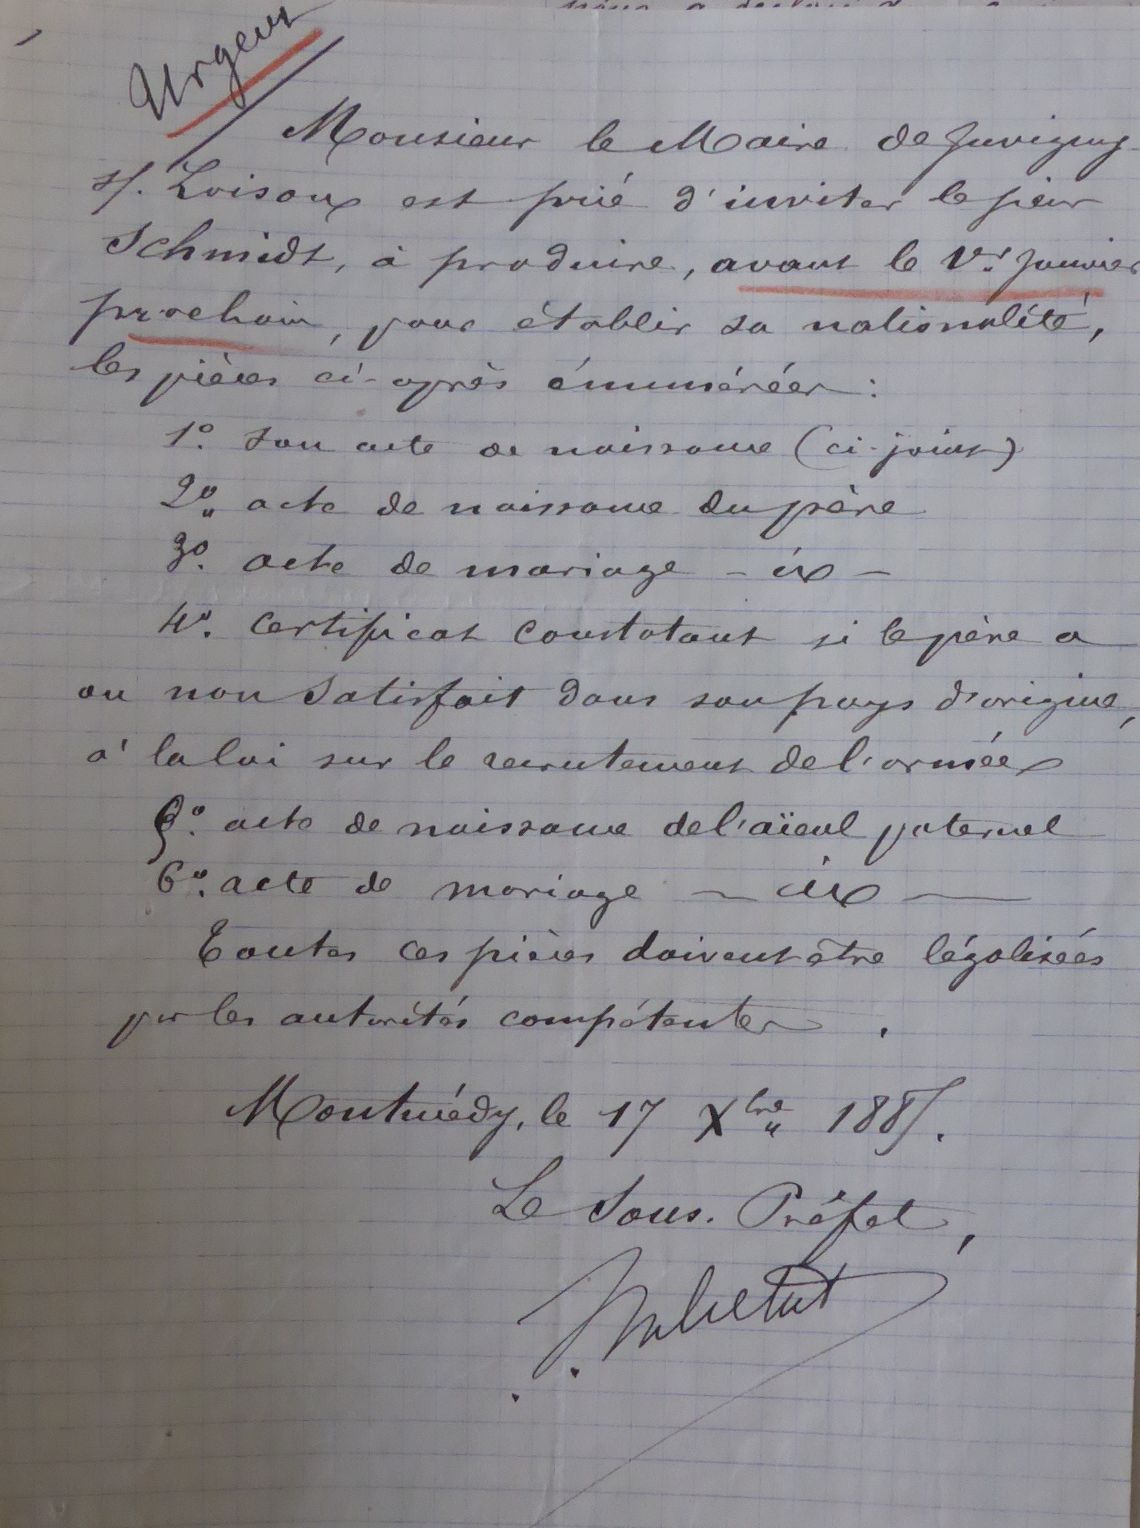 Urgent
Monsieur le Maire de Juvigny
s/. Loison est prié d'inviter le sieur
Schmidt, à produire, avant le 1er Janvier
prochain, pour établir sa nationalité,
les pièces ci-après énumérées :
1°. Son acte de naissance (ci-joint)
2° acte de naissance du père
3°. acte de mariage - id -
4°. Certificat constatant si le père a
ou non satisfait dans son pays d'origine,
à la loi sur le recrutement de l'armée
5°. acte de naissance de l'aïeul paternel
6°. acte de mariage - id -
Toutes ces pièces doivent être légalisées
par les autorités compétentes.
Montmédy, le 17 Xbre 188
Le Sous-Préfet,